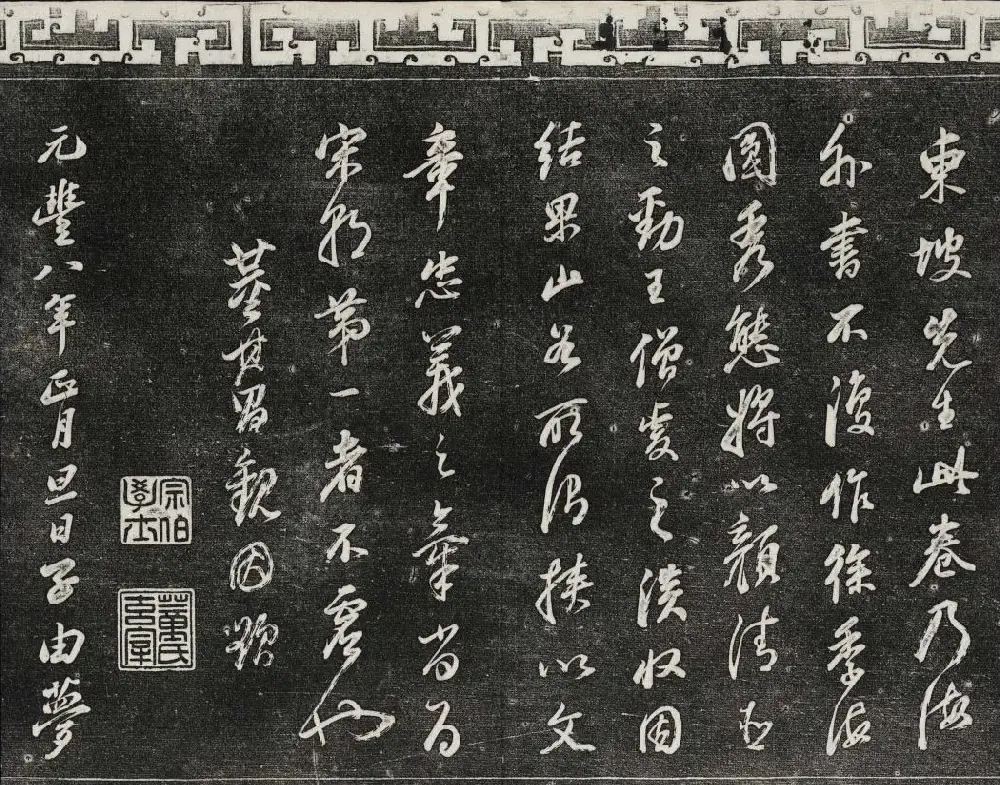 東坡先生此卷乃海
外書不復作徐季海
圓秀態將以顏清臣
之勁王僧虔之淡收因
結果山谷所謂挾以文
章忠義之氣當為
宋朝第一者不虛也
董其昌觀因題
宗伯學士
董氏玄宰
元豐八年正月旦日子由夢